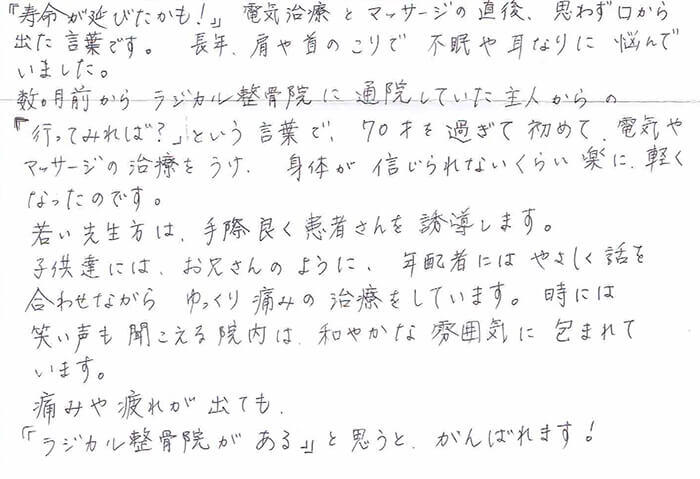 『寿命が延びたかも!』 電気治療とマッサージの直後、思わず口から
出た言葉です。 長年、肩や首のこりで 不眠や耳なりに 悩んで
いました。
数ヶ月前から ラジカル整骨院に 通院していた主人からの
『行ってみれば?』という言葉で、70才を過ぎて初めて、電気や
マッサージの治療をうけ、 身体が 信じられないくらい 楽に、軽く
なったのです。
若い先生方は、手際良く患者さんを 誘導します。
子供達には、お兄さんのように、 年配者には やさしく話を
合わせながら ゆっくり痛みの治療をしています。時には
笑い声も 聞こえる院内は、和やかな 雰囲気に 包まれて
います。
痛みや疲れが 出ても、
『ラジカル整骨院が ある』と思うと、がんばれます!